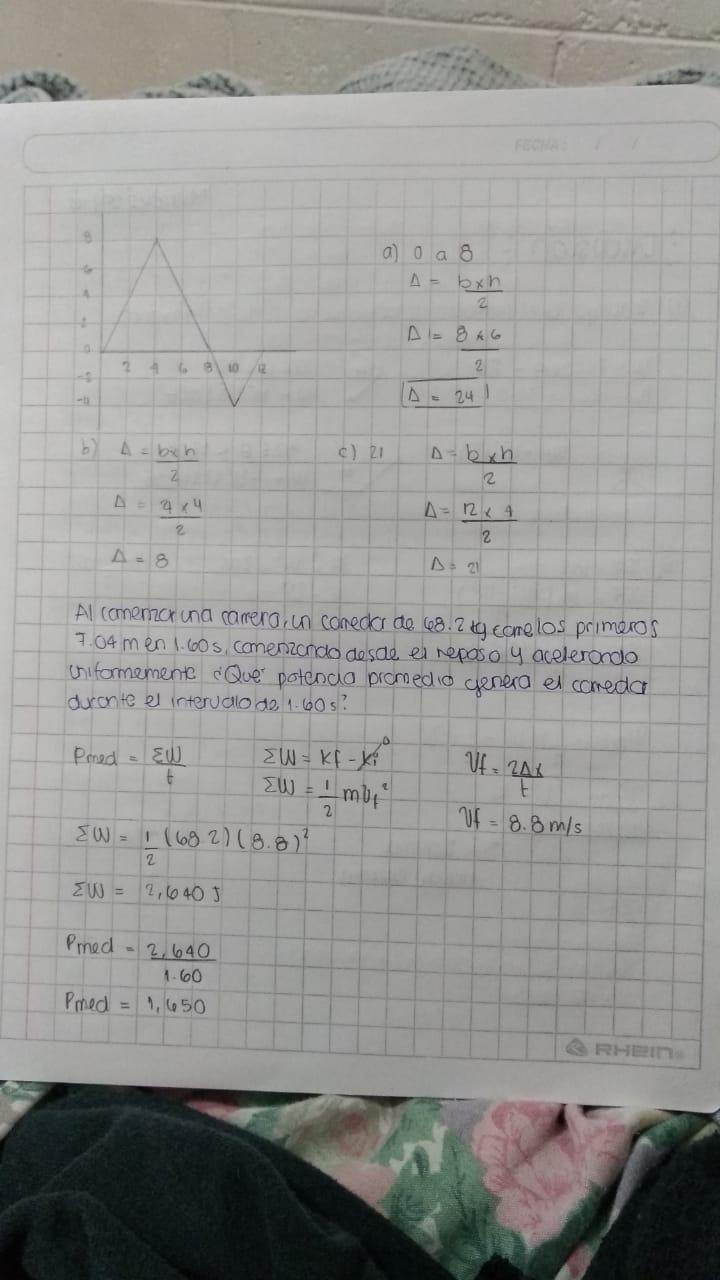 FECHA: / /
8
6
4
2
0
2 4 6 8 10 12
-2
-4
a) 0 a 8
Δ = bxh
2
Δ = 8 x 6
2
Δ = 24
b) Δ = bxh
2
Δ = 4 x 4
2
Δ = 8
c) 21 Δ = bxh
2
Δ = 12 x 4
2
Δ = 21
Al comenzar una carrera, un corredor de 68.2 kg corre los primeros
7.04 m en 1.60 s, comenzando desde el reposo y acelerando
uniformemente ¿Qué potencia promedio genera el corredor
durante el intervalo de 1.60 s?
Pmed = ΣW
t
ΣW = Kf - Ki 0
ΣW = 1 mVf²
2
Vf = 2Δx
t
Vf = 8.8 m/s
ΣW = 1 (68 2) (8.8)²
2
ΣW = 2,640 J
Pmed = 2,640
1.60
Pmed = 1,650
RHEIN